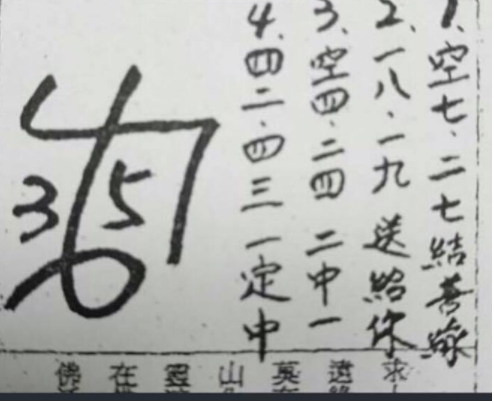 1、空七·二七結善緣
2、一八·一九送給你
3、空四·二四二中一
4、四二·四三一定中
3
5
求
莫
山
在
佛